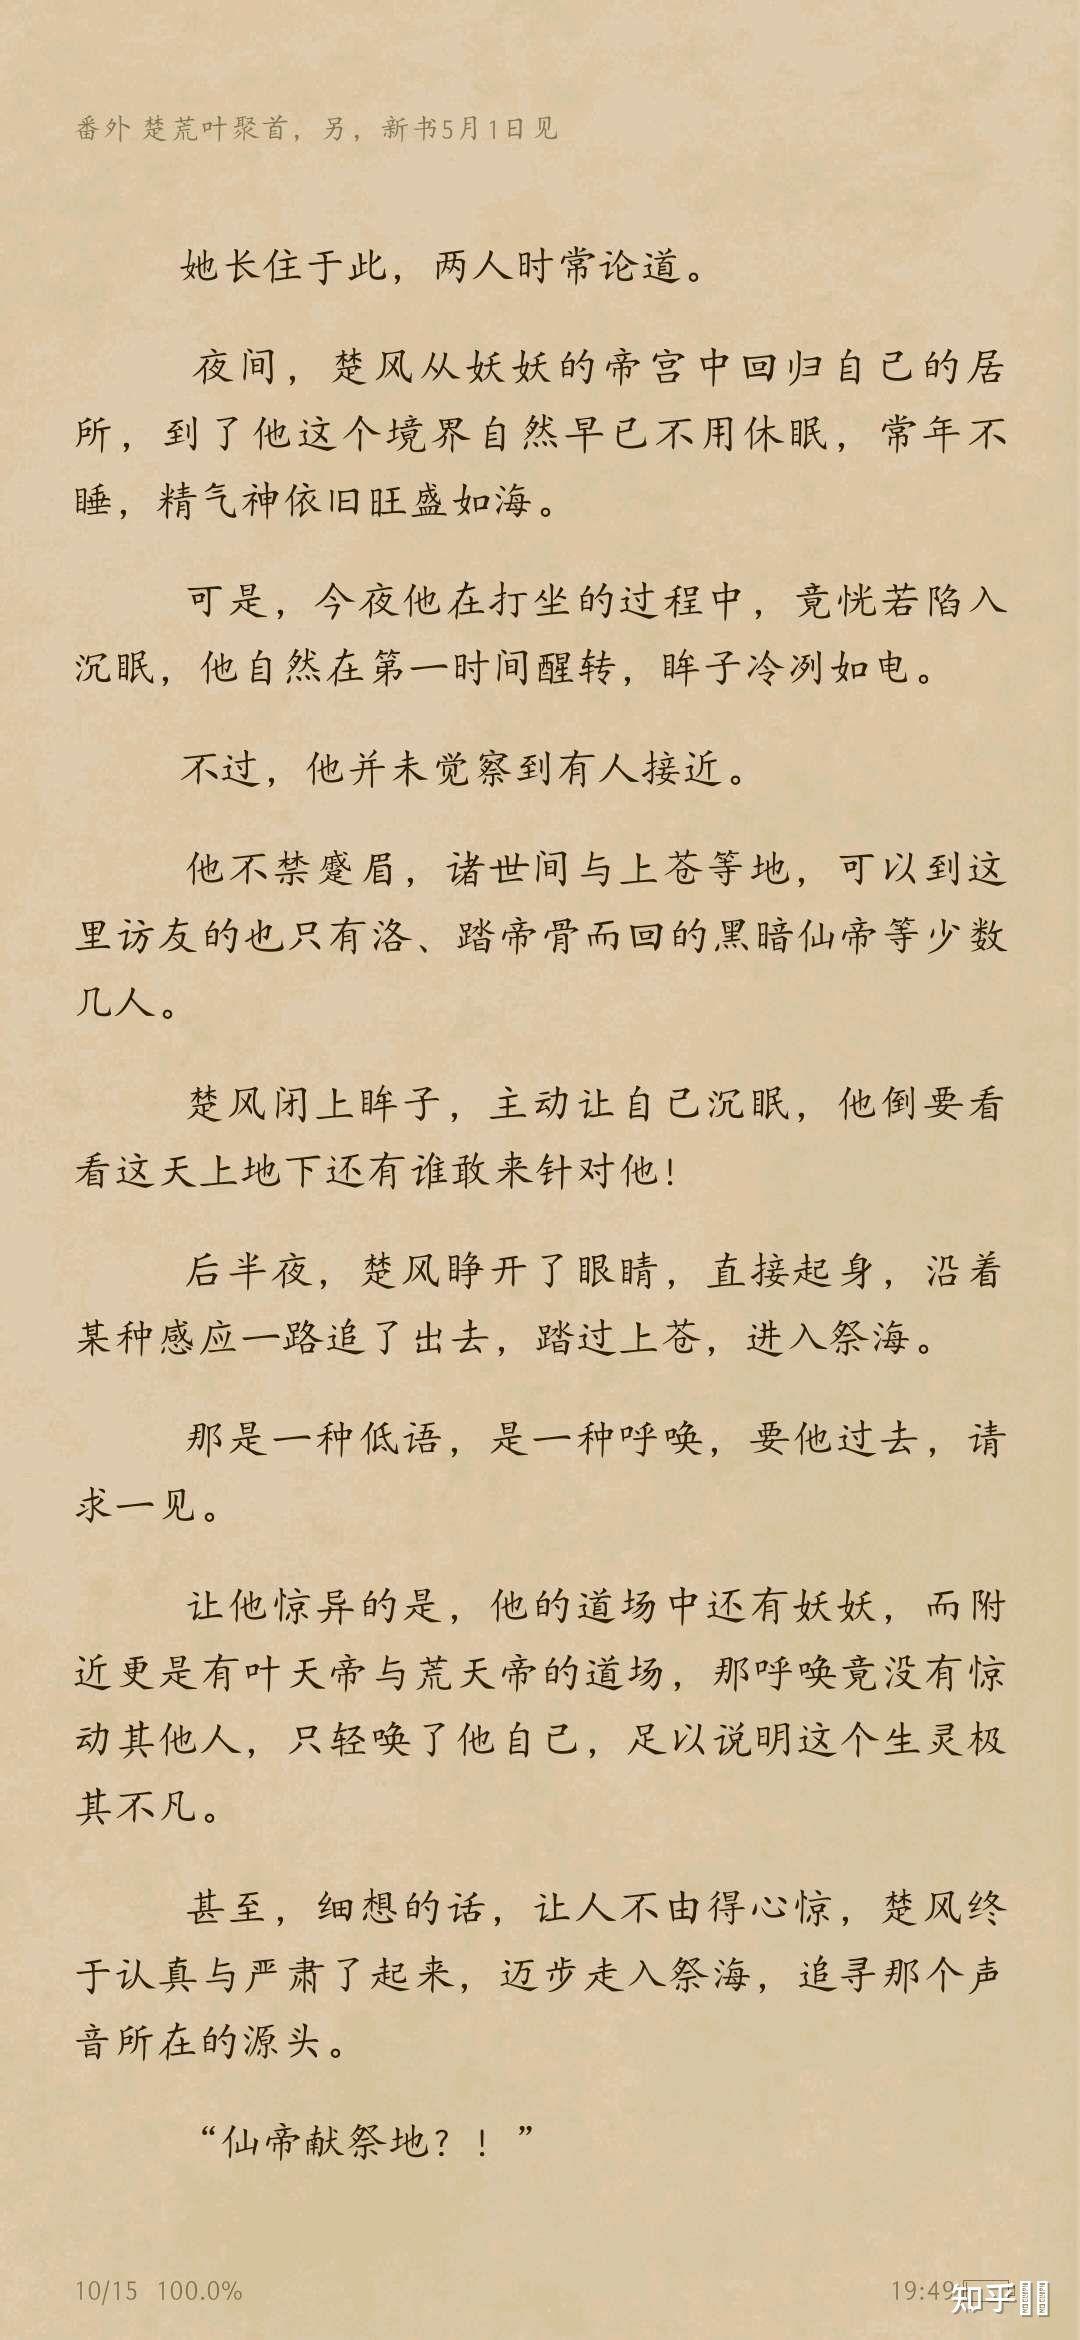 番外 楚荒叶聚首，另，新书5月1日见
她长住于此，两人时常论道。
夜间，楚风从妖妖的帝宫中回归自己的居
所，到了他这个境界自然早已不用休眠，常年不
睡，精气神依旧旺盛如海。
可是，今夜他在打坐的过程中，竟恍若陷入
沉眠，他自然在第一时间醒转，眸子冷冽如电。
不过，他并未觉察到有人接近。
他不禁蹙眉，诸世间与上苍等地，可以到这
里访友的也只有洛、踏帝骨而回的黑暗仙帝等少数
几人。
楚风闭上眸子，主动让自己沉眠，他倒要看
看这天上地下还有谁敢来针对他！
后半夜，楚风睁开了眼睛，直接起身，沿着
某种感应一路追了出去，踏过上苍，进入祭海。
那是一种低语，是一种呼唤，要他过去，请
求一见。
让他惊异的是，他的道场中还有妖妖，而附
近更是有叶天帝与荒天帝的道场，那呼唤竟没有惊
动其他人，只轻唤了他自己，足以说明这个生灵极
其不凡。
甚至，细想的话，让人不由得心惊，楚风终
于认真与严肃了起来，迈步走入祭海，追寻那个声
音所在的源头。
“仙帝献祭地？！”
10/15 100.0%
19:49
知乎